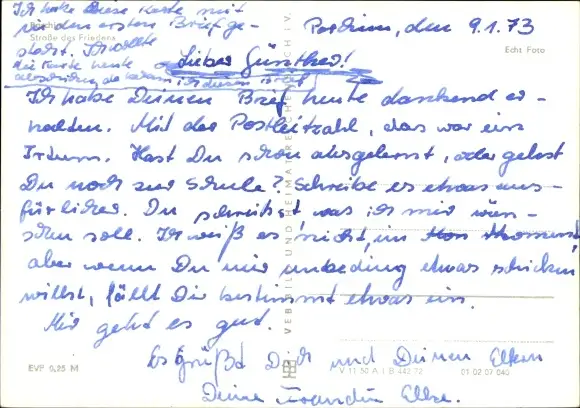 Ich habe diese Karte mit
in den ersten Brief ge-
steckt. Ich wollte
die Karte heute
Straße des Friedens
Parchim, den 9.1.73
Echt Foto
Lieber Günther!
Ich habe Deinen Brief heute dankend er-
halten. Mit der Postleitzahl, das war ein
Irrtum. Hast Du schon ausgelernt, oder gehst
Du noch zur Schule? Schreibe es etwas aus-
fürlicher. Du schreibst was ich mir wün-
schen soll. Ich weiß es nicht, im Moment
aber wenn Du mir unbeding etwas schicken
willst, fällt Dir bestimmt etwas ein.
Mir geht es gut.
Es Grüßt Dich und Deinen Eltern
Deine Freundin Elke.
EVP 0,25 M
V 11 50 A I B 442 72 01 02 07 040
VEB BILD UND HEIMAT REICHENBACH I. V.